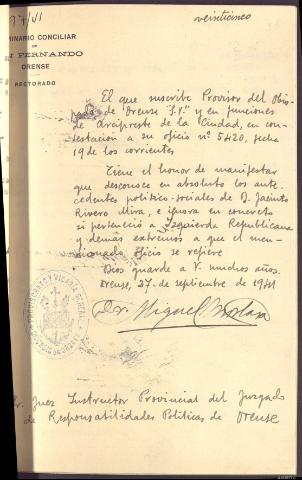 veinticinco
MINARIO CONCILIAR
DE
FERNANDO
ORENSE
RECTORADO
El que suscribe Provisor del Obis-
pado de Orense S.P. y en funciones
de Arcipreste de la Ciudad, en con-
testación a su oficio nº 5420, fecha
19 de los corrientes
Tiene el honor de manifestar
que desconoce en absoluto los ante-
cedentes político-sociales de D. Jacinto
Rivero Mira, e ignora en concreto
si perteneció a Izquierda Republicana
y demás extremos a que el men-
cionado oficio se refiere
Dios guarde a V. muchos años.
Orense, 27 de septiembre de 1941
Dr. Miguel
Sr. Juez Instructor Provincial del Juzgado
de Responsabilidades Políticas de Orense